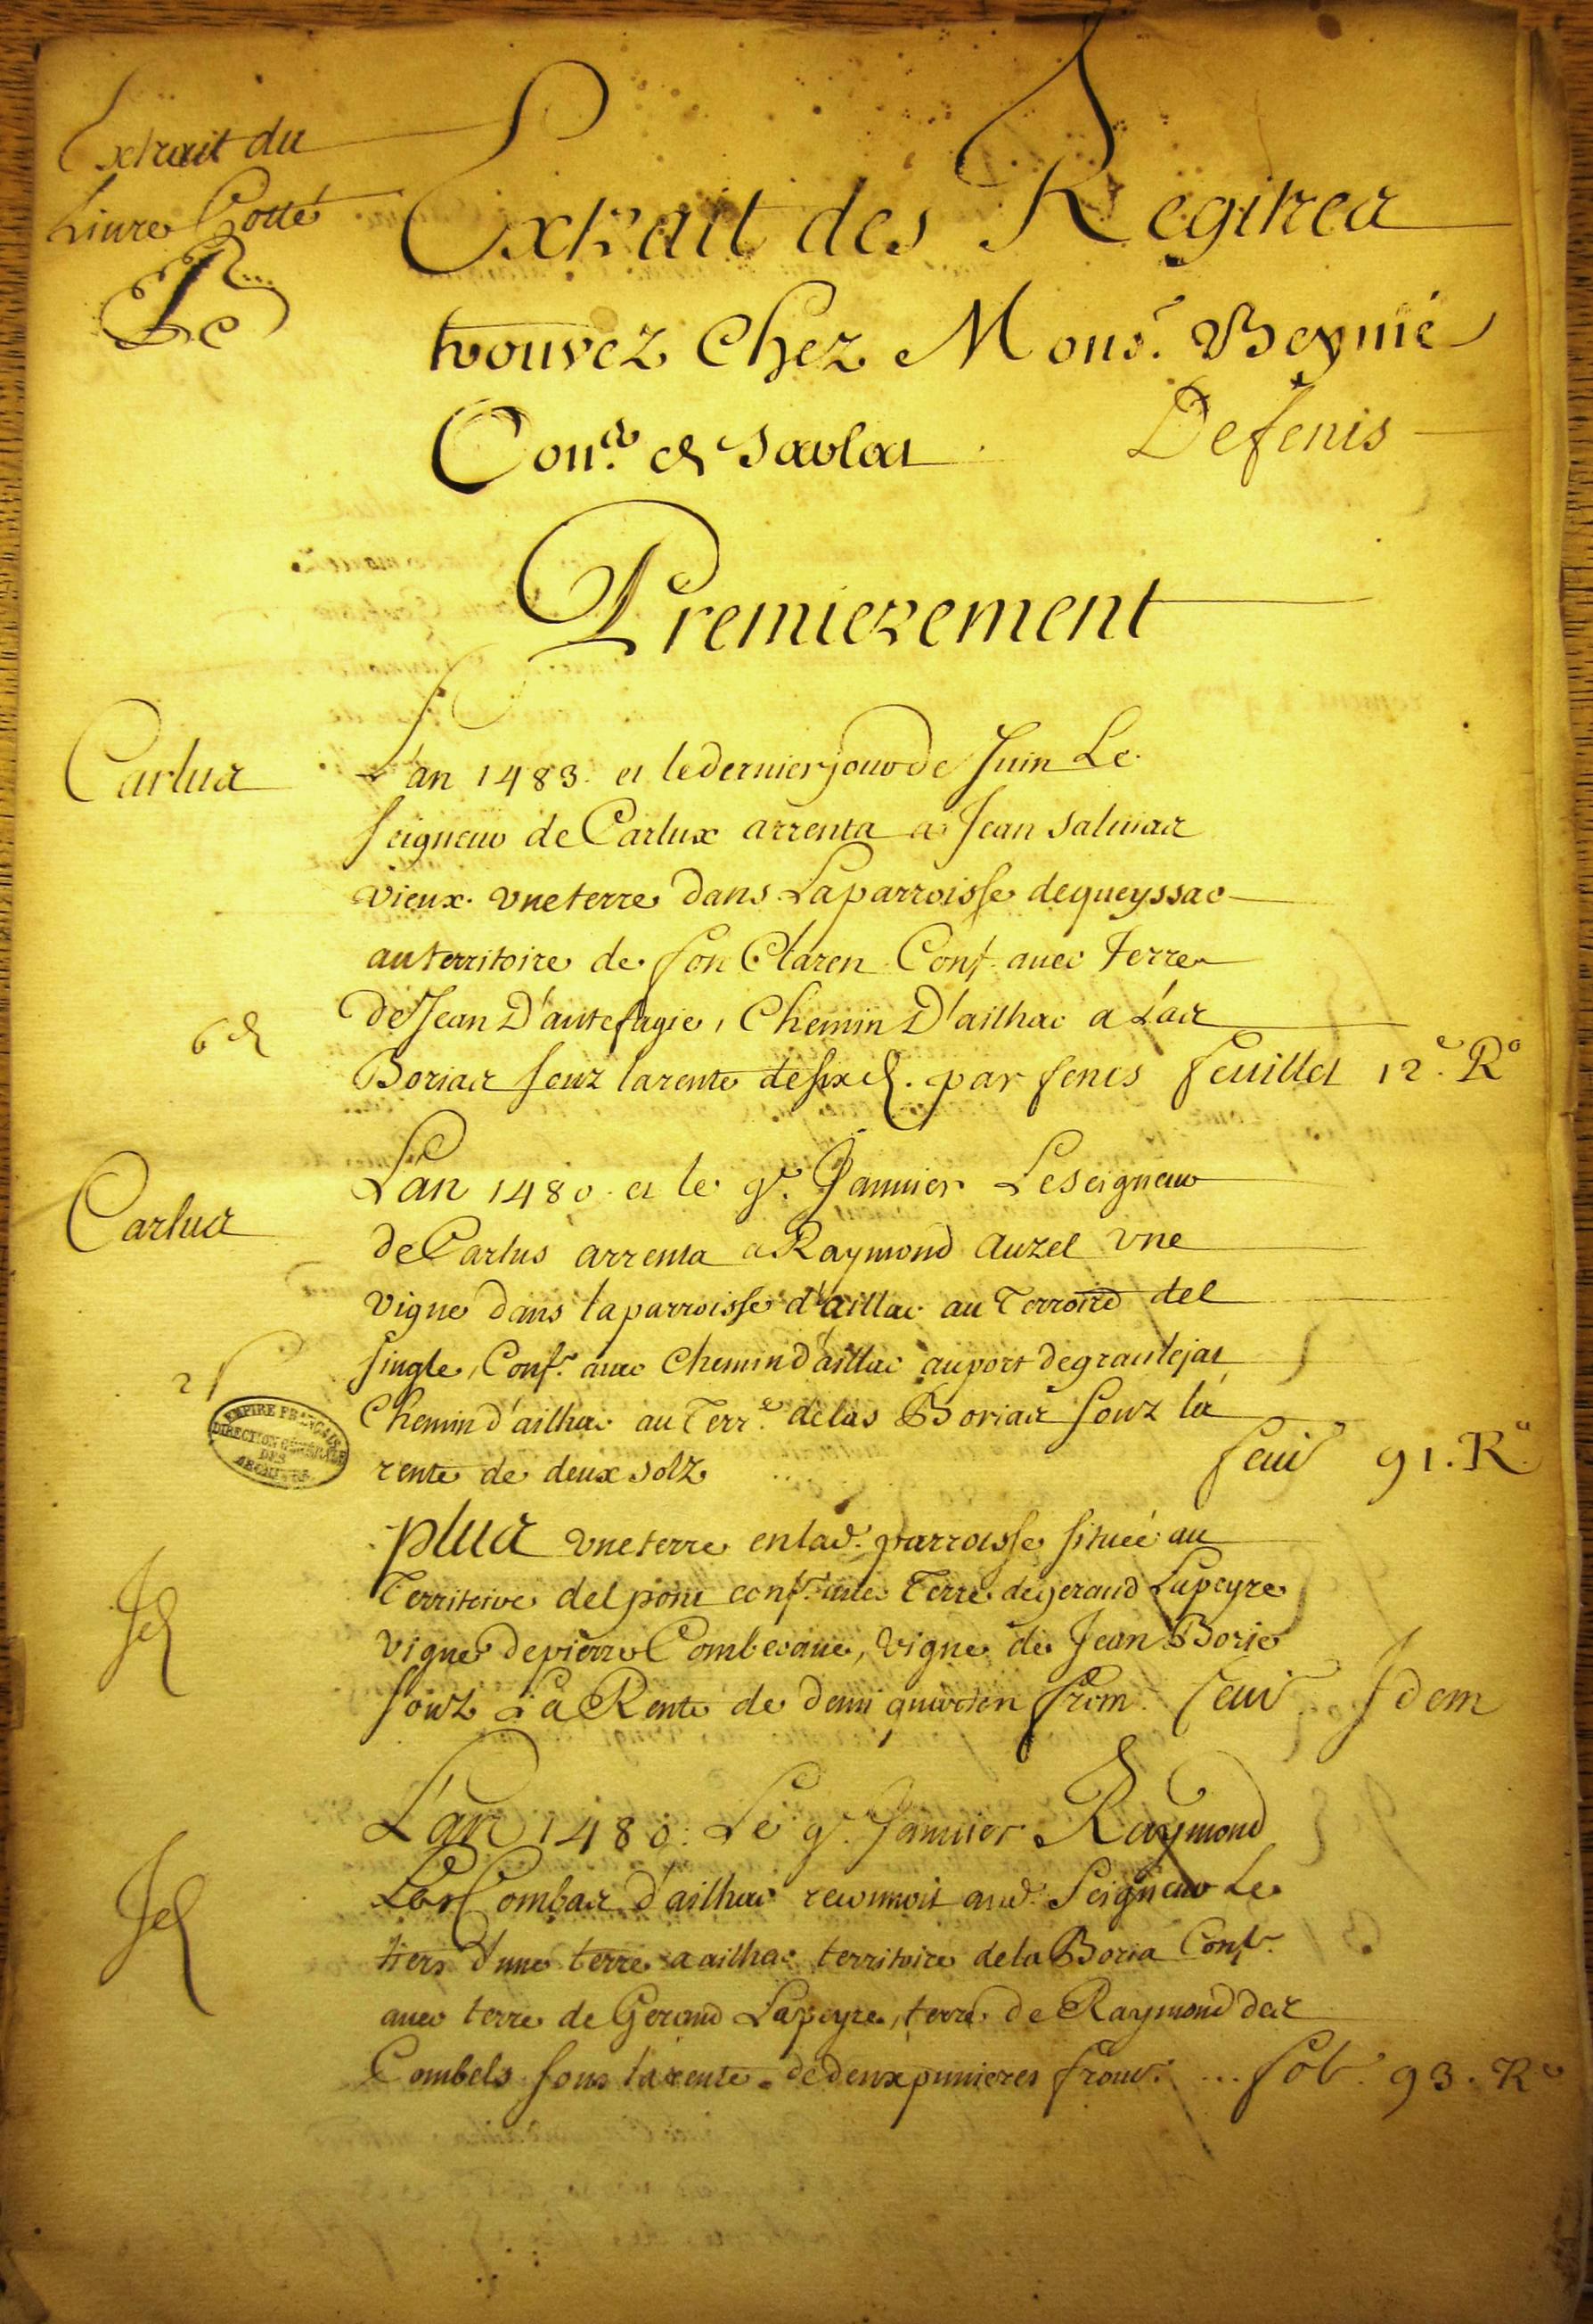 Extrait du
Livre Cotté
Extrait des Regitres
trouvez Chez Mons.r Beynié
Con.er de Sarlat
Defenis
Premierement
Carlus
L'an 1483. et le dernier jour de Juin Le
seigneur de Carlux arrenta a Jean salmar
vieux. une terre dans La parroisse de queyssac
au territoire de fon Claren Conf. avec terre
de Jean D'autefagie, Chemin D'ailhac a Las
6 d
Borias souz la rente de six d. par fenis feuillet 12.e R.o
Carlus
L'an 1480. et le 9.e Januier Le seigneur
de Carlus arrenta a Raymond Auzel une
vigne dans la parroisse d'aillac au Terroird del
single, Conf.r auec chemin d'aillac au port de graulejat
2 s
Chemin d'ailhac au Terr.e de las Borias souz la
rente de deux solz feuil 91. R.o
EMPIRE FRANÇAIS
DIRECTION GÉNÉRALE
DES
ARCHIVES
plus une terre en lad. parroisse située au
Id
Territoire del pont conf.r auec Terre de geraud Lapeyre
vigne de pierre Combecaue, vigne de Jean Borie
souz La Rente de demi quarton from. feuil Idem
L'an 1480. Le 9.e Januier Raymond
Id
Les Combas d'ailhac reconnoit aud. Seigneur Le
tiers d'une terre a ailhac territoire de la Boria Conf.r
auec terre de Geraud Lapeyre, terre de Raymond das
Combels sous la rente de deux punieres from. ... fol. 93. R.o